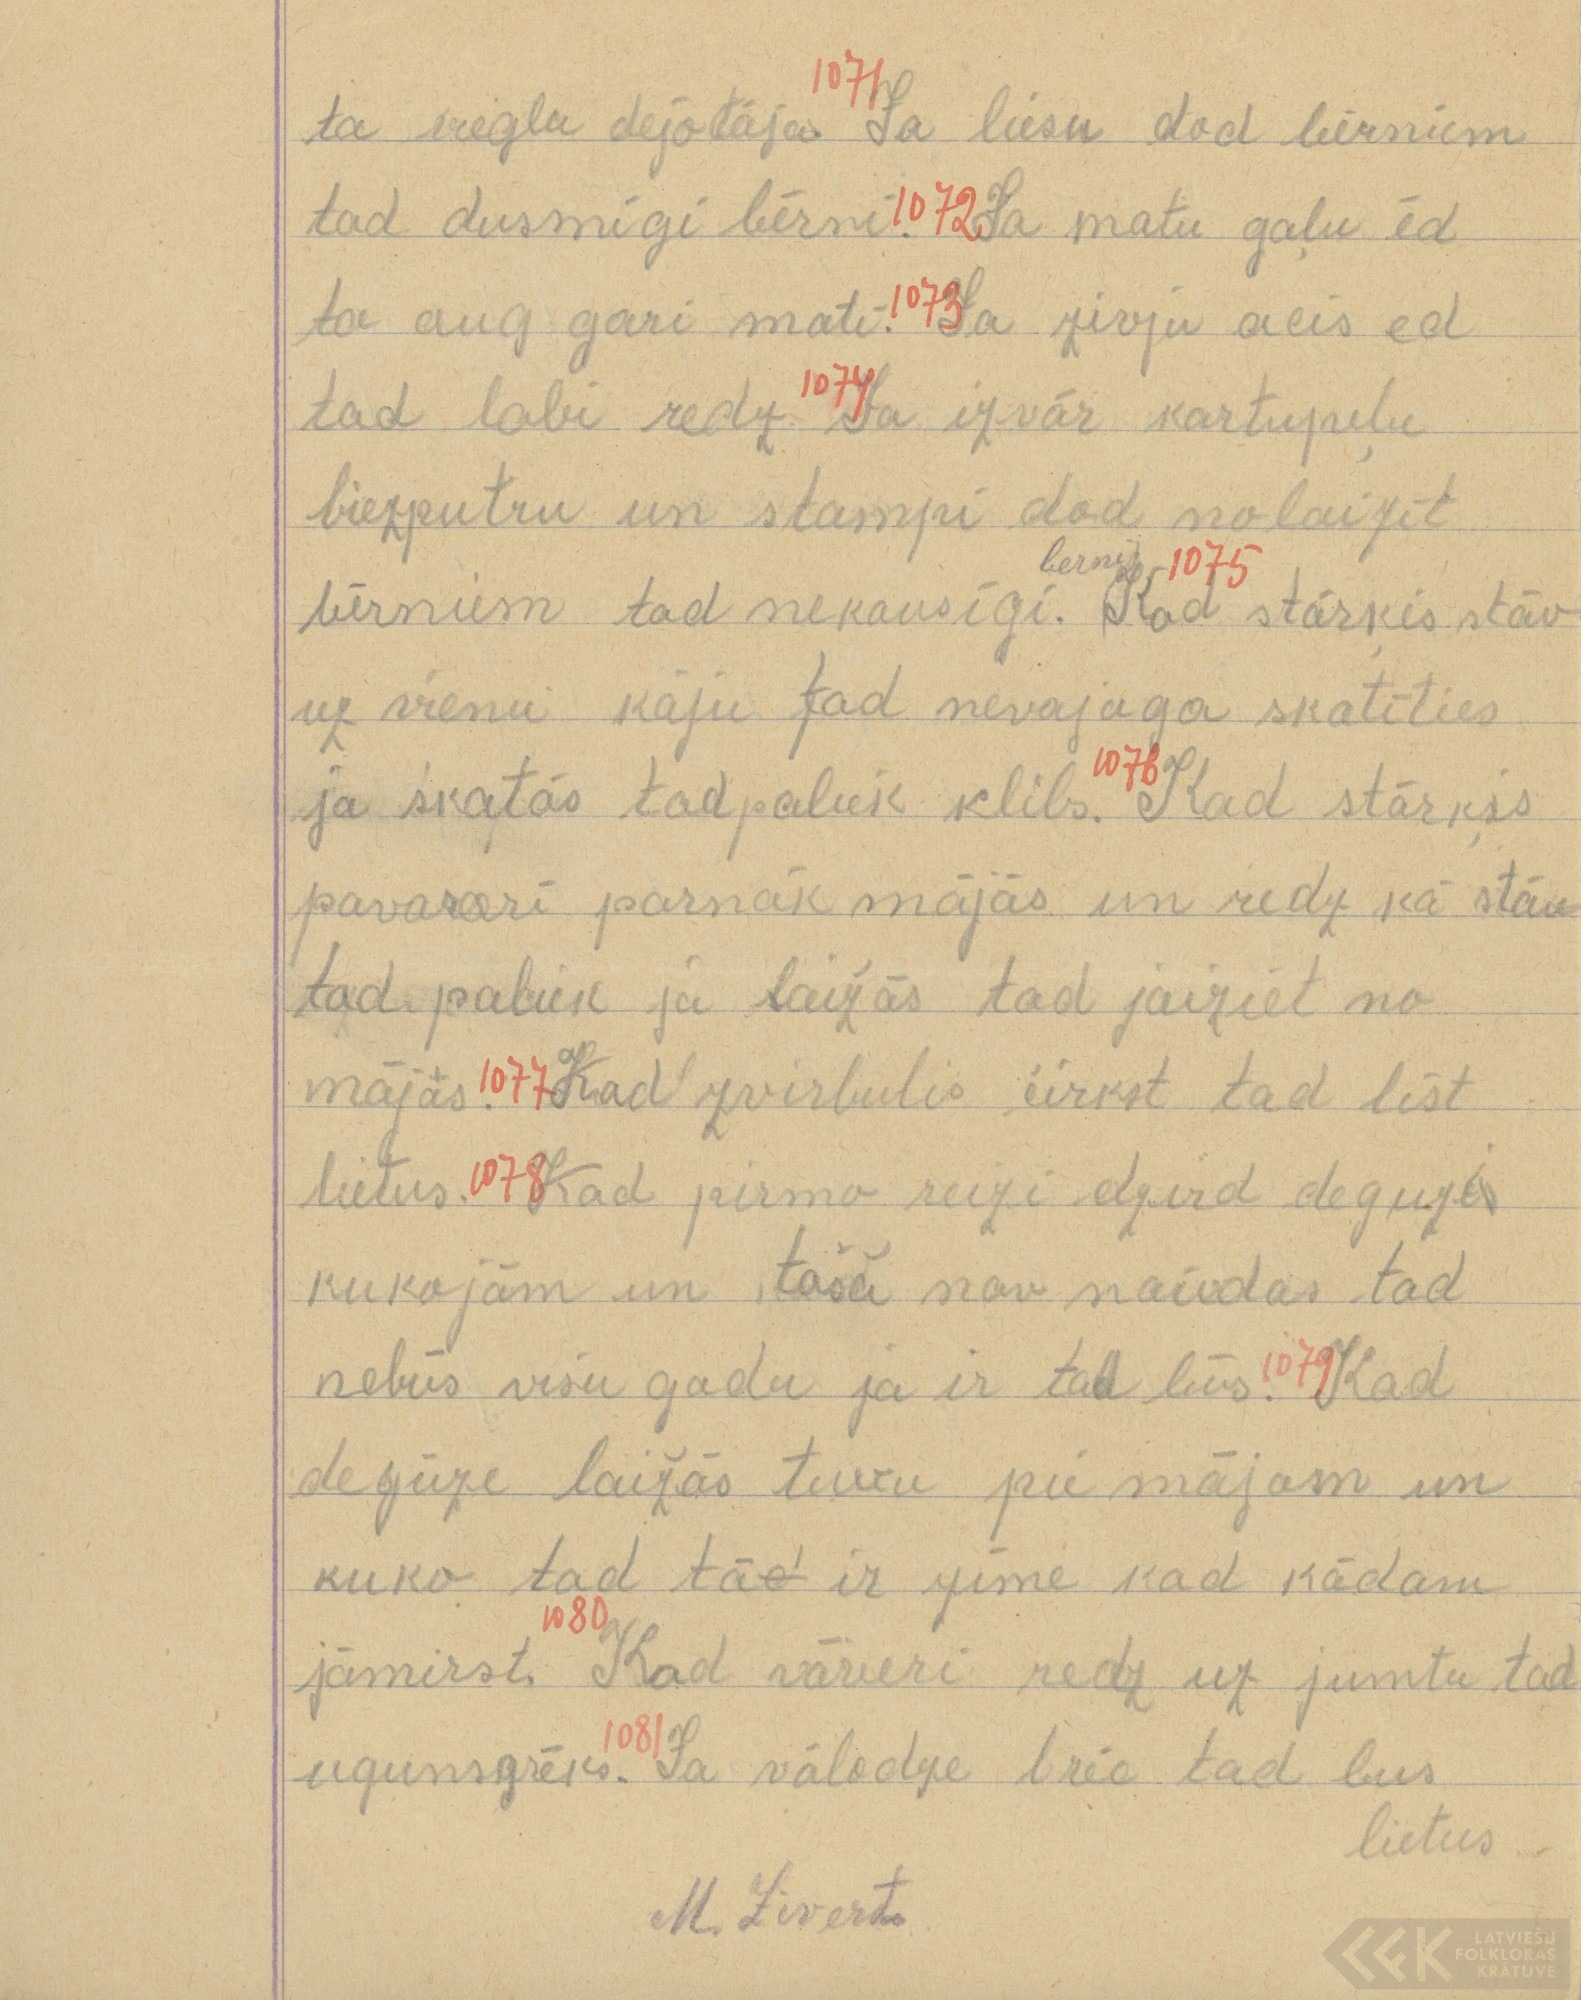 ta viegla dejotāja. 1071 Ja liesu dod bērniem
tad dusmīgi bērni. 1072 Ja matu gaļu ēd
ta aug gari mati. 1073 Ja zivju acis ed
tad labi redz 1074 Ja izvār kartupeļu
biezputru un stampi dod nolaizīt
berni 1075
bērniem tad nekausīgi. Kad stārķis stāv
uz vienu kāju tad nevajaga skatīties
ja skatās tad paliek klibs. 1076 Kad stārķis
pavasari parnāk mājās un redz kā stāv
tad paliek ja laižās tad jaiziet no
mājās. 1077 Kad zvirbulis čirkst tad līst
lietus. 1078 Kad pirmo reizi dzird deguzi
kukojām un tašā nav naudas tad
nebūs visu gadu ja ir tad būs. 1079 Kad
degūze laižās tuvu pie mājam un
kuko tad tā ir zīme kad kādam
jāmirst. 1080 Kad vāveri redz uz jumtu tad
ugunsgrēks. 1081 Ja vālodze brēc tad bus
lietus
M. Zivert
LATVIEŠU
FOLKLORAS
KRĀTUVE